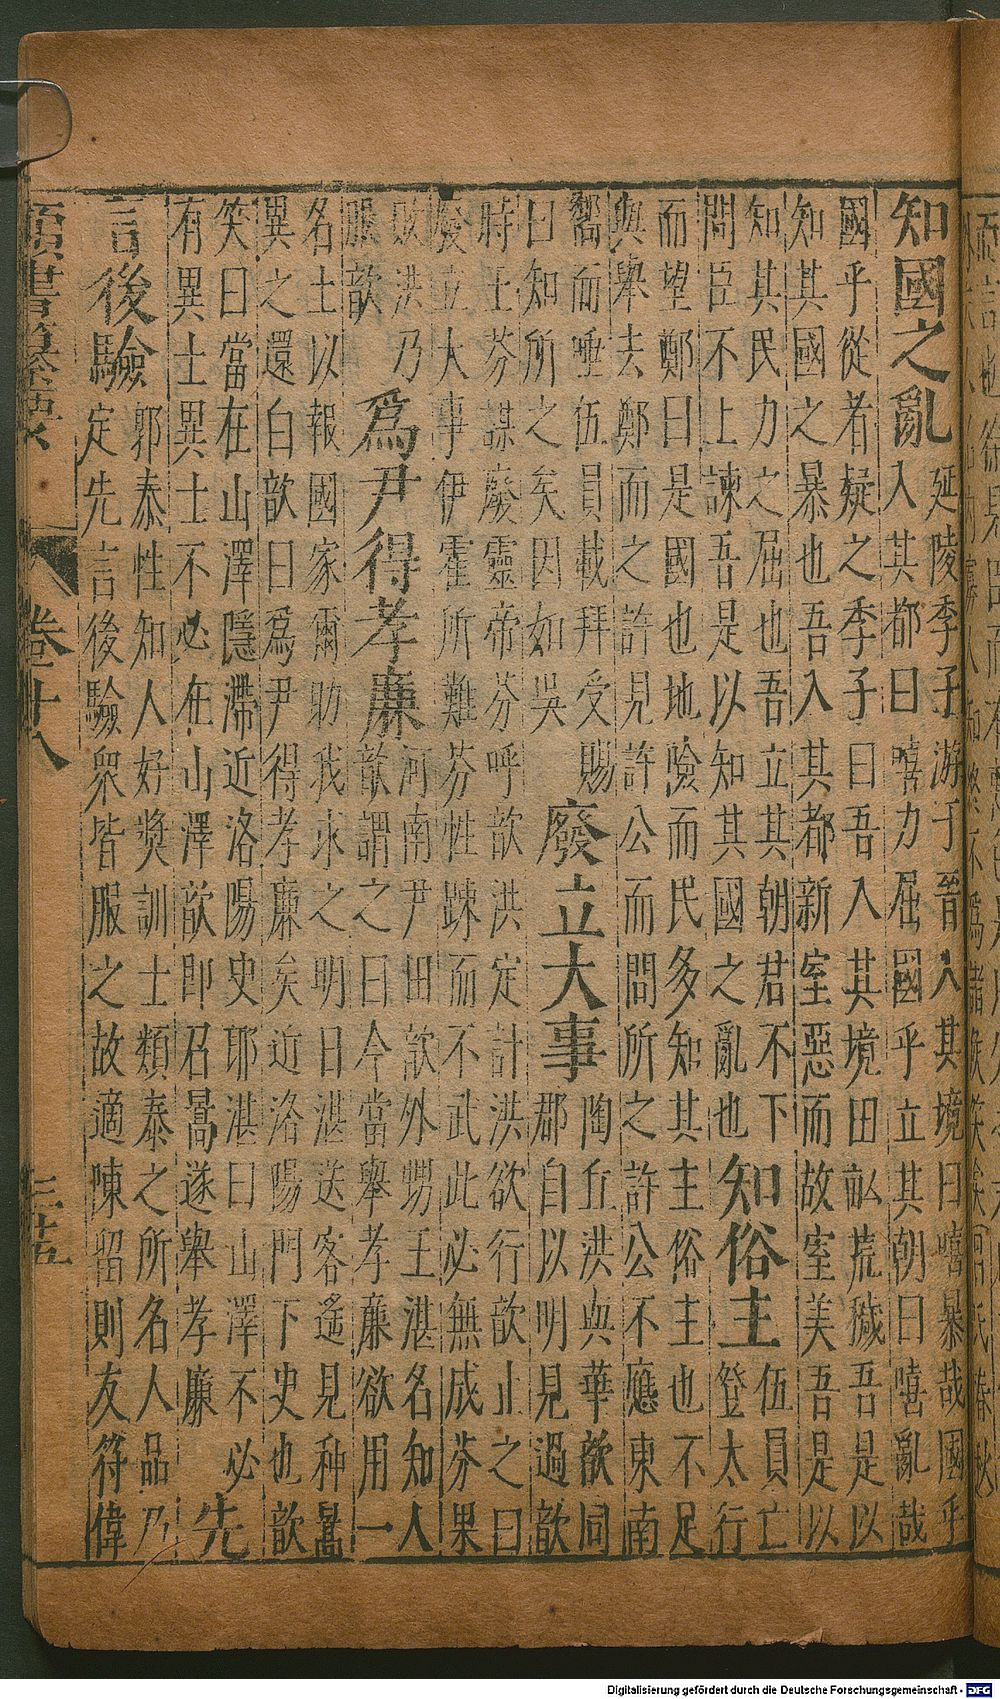 知國之亂 延陵季子游于晉入其境曰嘻暴哉國乎
入其都曰嘻力屈國乎立其朝曰嘻亂哉
國乎從者疑之季子曰吾入其境田畝荒穢吾是以
知其國之暴也吾入其都新室惡而故室美吾是以
知其民力之屈也吾立其朝君不下
問臣不上諫吾是以知其國之亂也
知俗主 伍員亡
登太行
而望鄭曰是國也地險而民多知其主俗主也不足
與舉去鄭而之許見許公而問所之許公不應東南
嚮而唾伍員載拜受賜
曰知所之矣因如吳
廢立大事 陶丘洪與華歆同
郡自以明見過歆
時王芬謀廢靈帝芬呼歆洪定計洪欲行歆止之曰
廢立大事伊霍所難芬性踈而不武此必無成芬果
敗洪乃
服歆
爲尹得孝廉 河南尹田歆外甥王湛名知人
歆謂之曰今當舉孝廉欲用一
名士以報國家爾助我求之明日湛送客遙見种暠
異之還白歆曰爲尹得孝廉矣近洛陽門下史也歆
笑曰當在山澤隱滯近洛陽史耶湛曰山澤不必
有異士異士不必在山澤歆即召暠遂舉孝廉
先
言後驗 郭泰性知人好獎訓士類泰之所名人品乃
定先言後驗衆皆服之故適陳留則友符偉
類書纂要 卷廿八 三十五
Digitalisierung gefördert durch die Deutsche Forschungsgemeinschaft - DFG